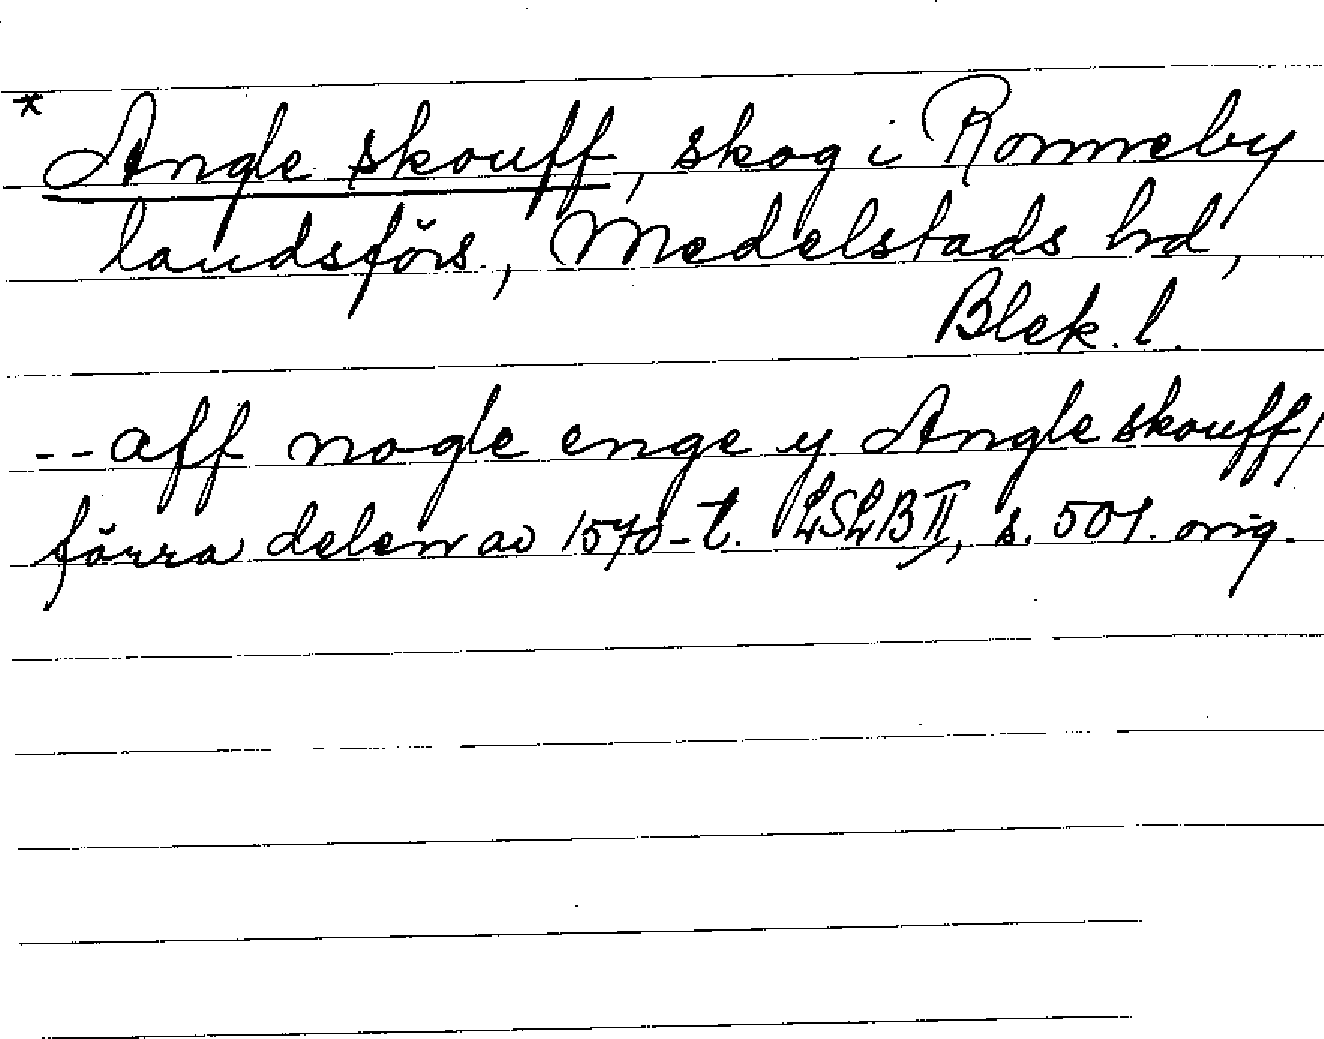 * Angle skouff, skog i Ronneby
landsförs., Medelstads hd,
Blek. l.
-- aff nogle enge y Angle skouff,
förra delen av 1570-t. LSLB II, s. 501. orig.